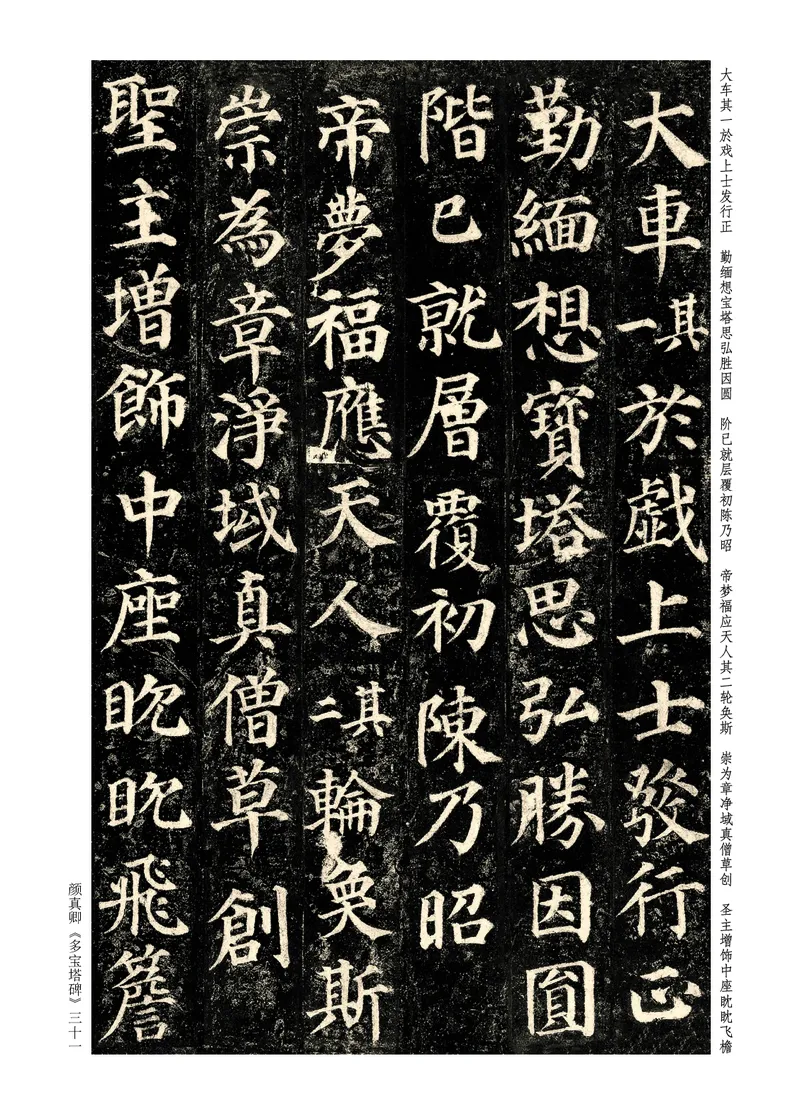 大车其一於戏上士发行正 勤缅想宝塔思弘胜因圆 阶已就层覆初陈乃昭 帝梦福应天人其二轮奂斯 崇为章净域真僧草创 圣主增饰中座眈眈飞檐
大車其一於戯上士發行正
勤緬想寶塔思弘勝因圓
階已就層覆初陳乃昭
帝夢福應天人其二輪奐斯
崇為章淨域真僧草創
聖主增飾中座眈眈飛簷
颜真卿《多宝塔碑》三十一